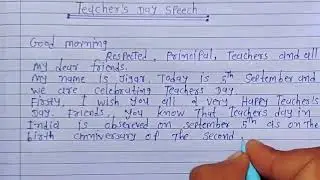 Teacher's Day Speech
Good morning
Respected, Principal, Teachers and all
my dear friends.
My name is Jigar. Today is 5th September and
we are celebrating Teachers Day.
Firsty, I wish you all a very Happy Teacher's
Day. Friends, you know That Teachers day in
India is observed on september 5th as on The
birth anniversary of The Second,